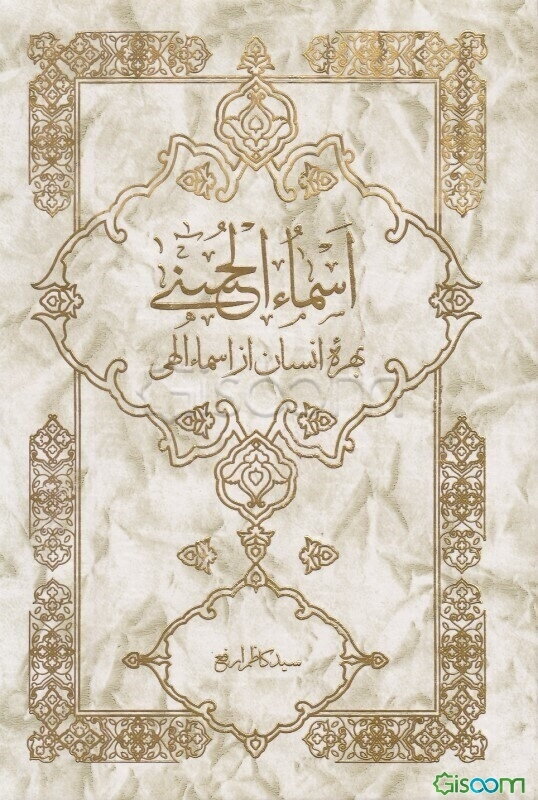 اَسْماءُ الْحُسْنى
بهرۀ انسان از اسماء الهی
Gisoom
سید کاظم ارفع
Gisoom